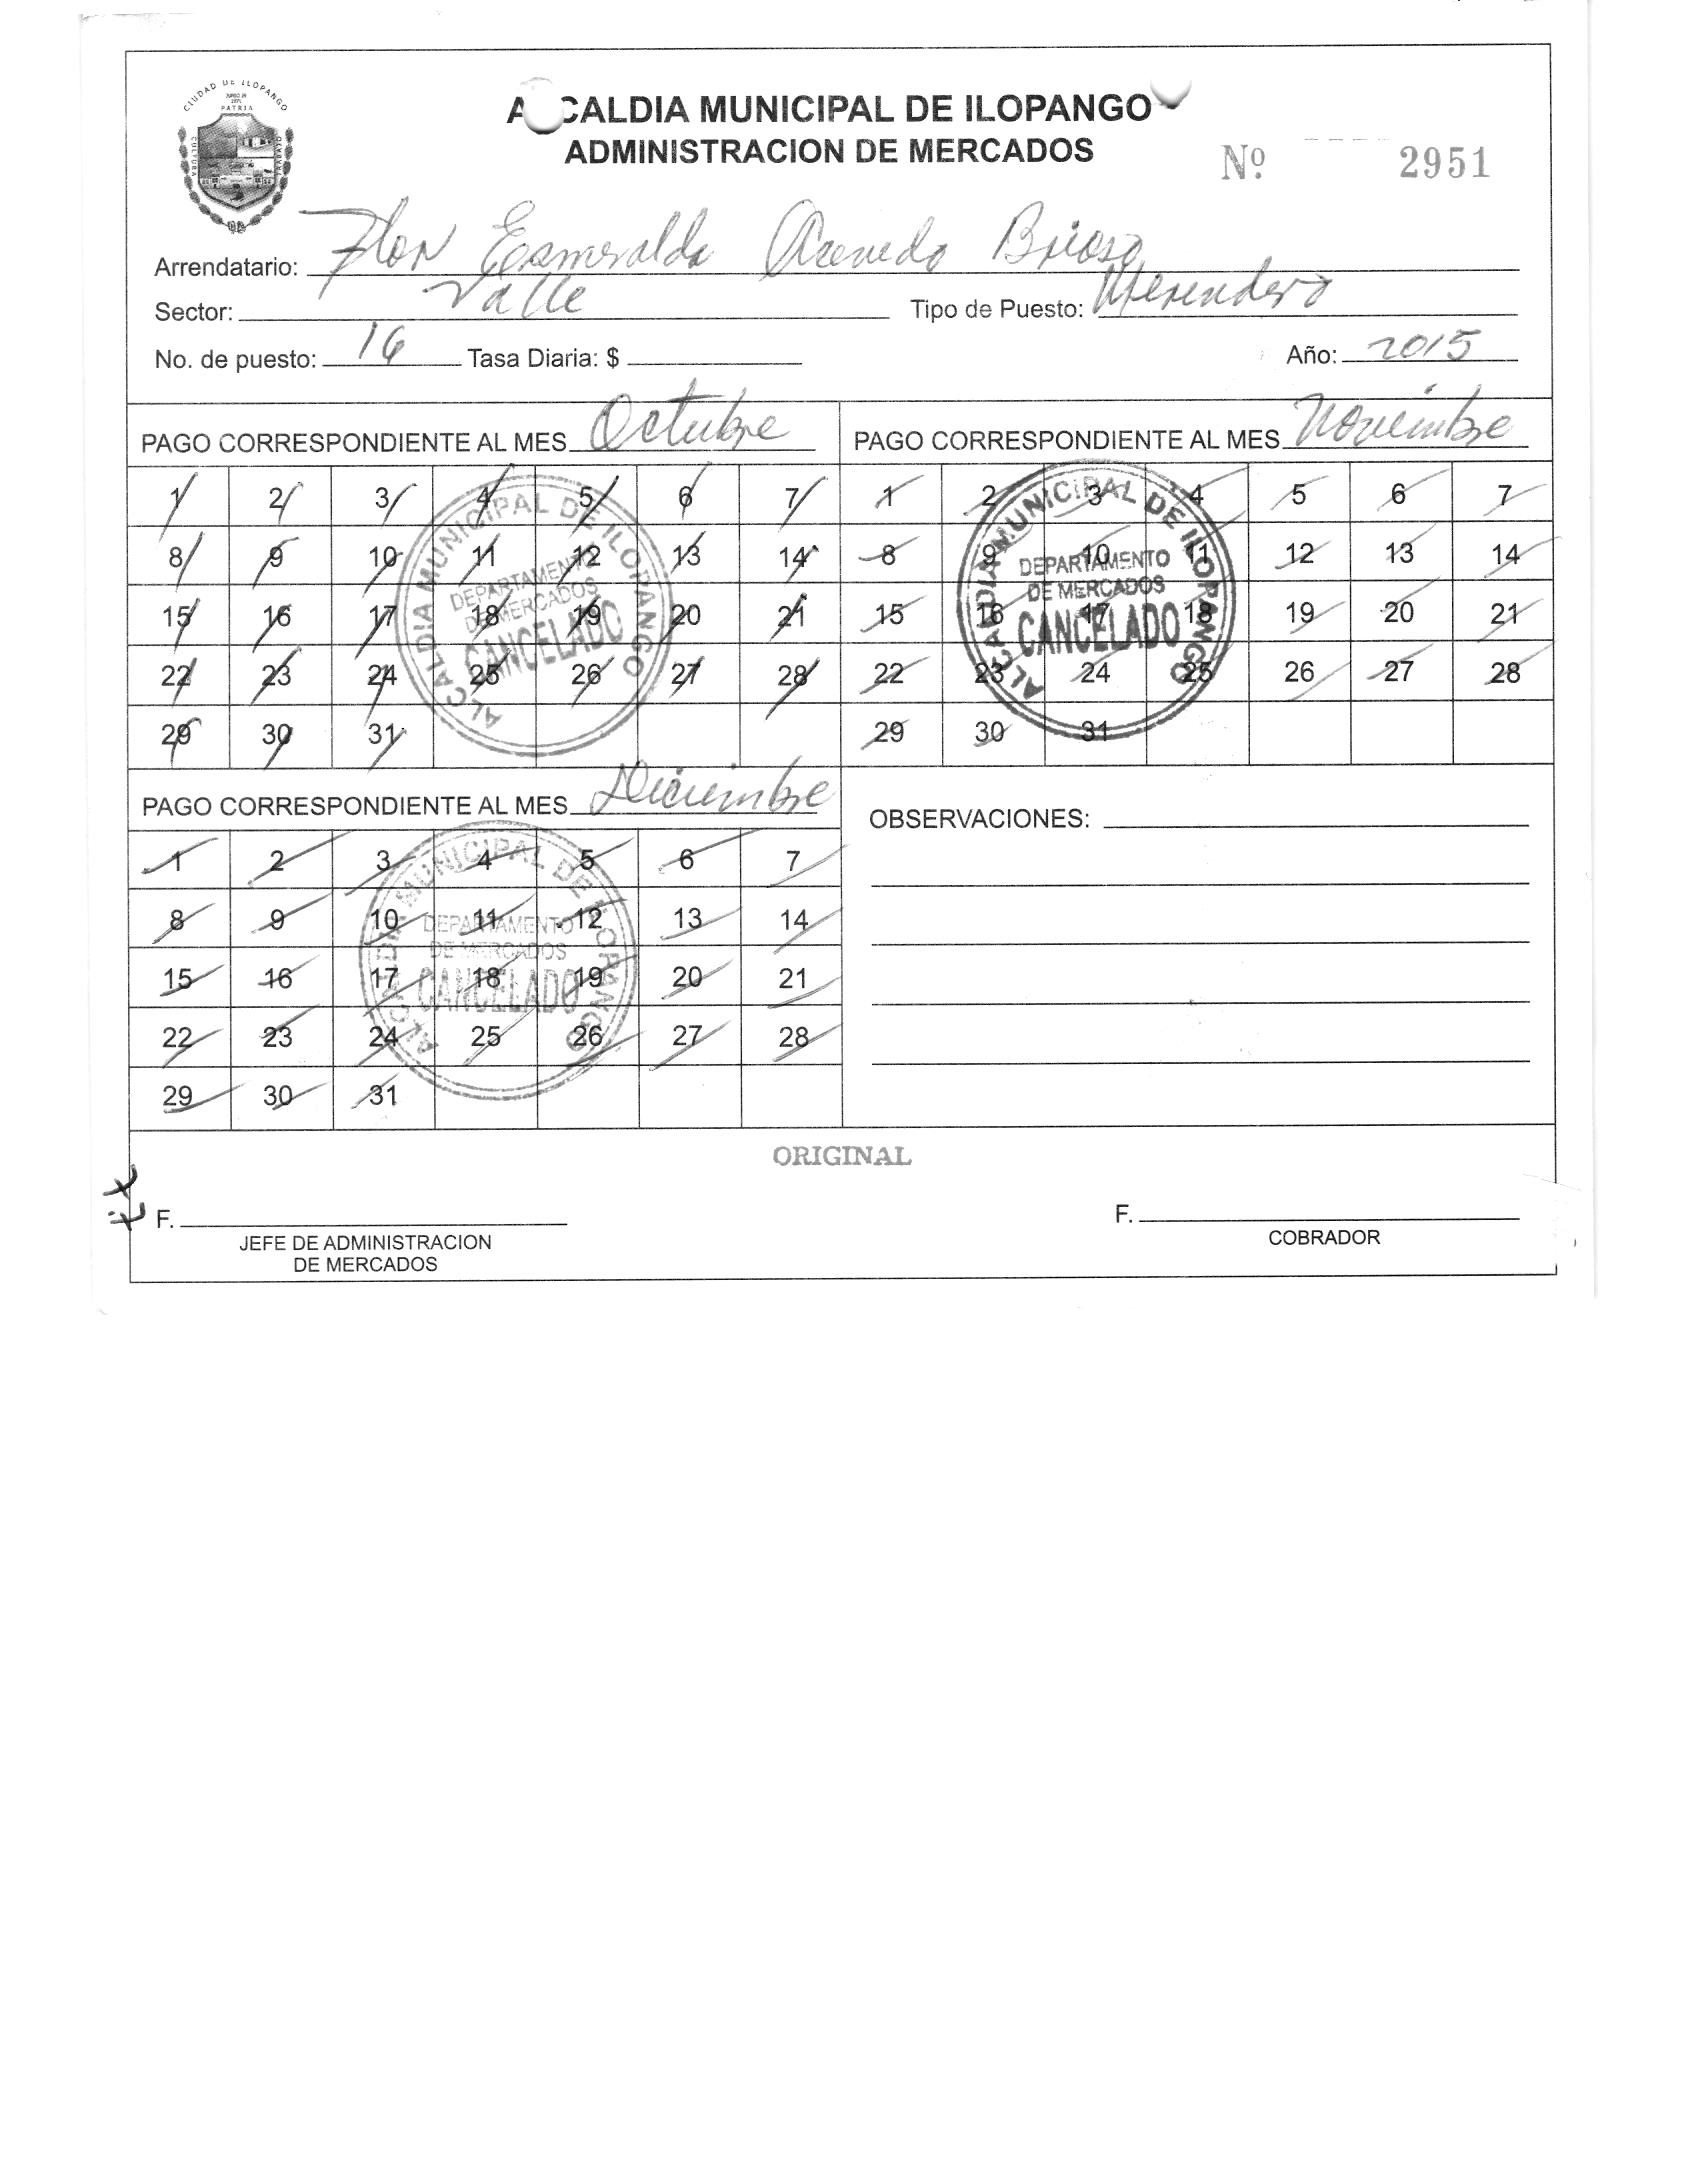 CIUDAD DE ILOPANGO
PATRIA
CULTURA
ALCALDIA MUNICIPAL DE ILOPANGO
ADMINISTRACION DE MERCADOS
Nº 2951
Arrendatario: Flor Esmeralda Acevedo Brioso
Sector: Valle Tipo de Puesto: Merendero
No. de puesto: 16 Tasa Diaria: $ Año: 2015
PAGO CORRESPONDIENTE AL MES Octubre
1 2 3 4 5 6 7
8 9 10 11 12 13 14
15 16 17 18 19 20 21
22 23 24 25 26 27 28
29 30 31
ALCALDIA MUNICIPAL DE ILOPANGO
DEPARTAMENTO
DE MERCADOS
CANCELADO
PAGO CORRESPONDIENTE AL MES Noviembre
1 2 3 4 5 6 7
8 9 10 11 12 13 14
15 16 17 18 19 20 21
22 23 24 25 26 27 28
29 30 31
ALCALDIA MUNICIPAL DE ILOPANGO
DEPARTAMENTO
DE MERCADOS
CANCELADO
PAGO CORRESPONDIENTE AL MES Diciembre
1 2 3 4 5 6 7
8 9 10 11 12 13 14
15 16 17 18 19 20 21
22 23 24 25 26 27 28
29 30 31
ALCALDIA MUNICIPAL DE ILOPANGO
DEPARTAMENTO
DE MERCADOS
CANCELADO
OBSERVACIONES:
ORIGINAL
F.
JEFE DE ADMINISTRACION
DE MERCADOS
F.
COBRADOR